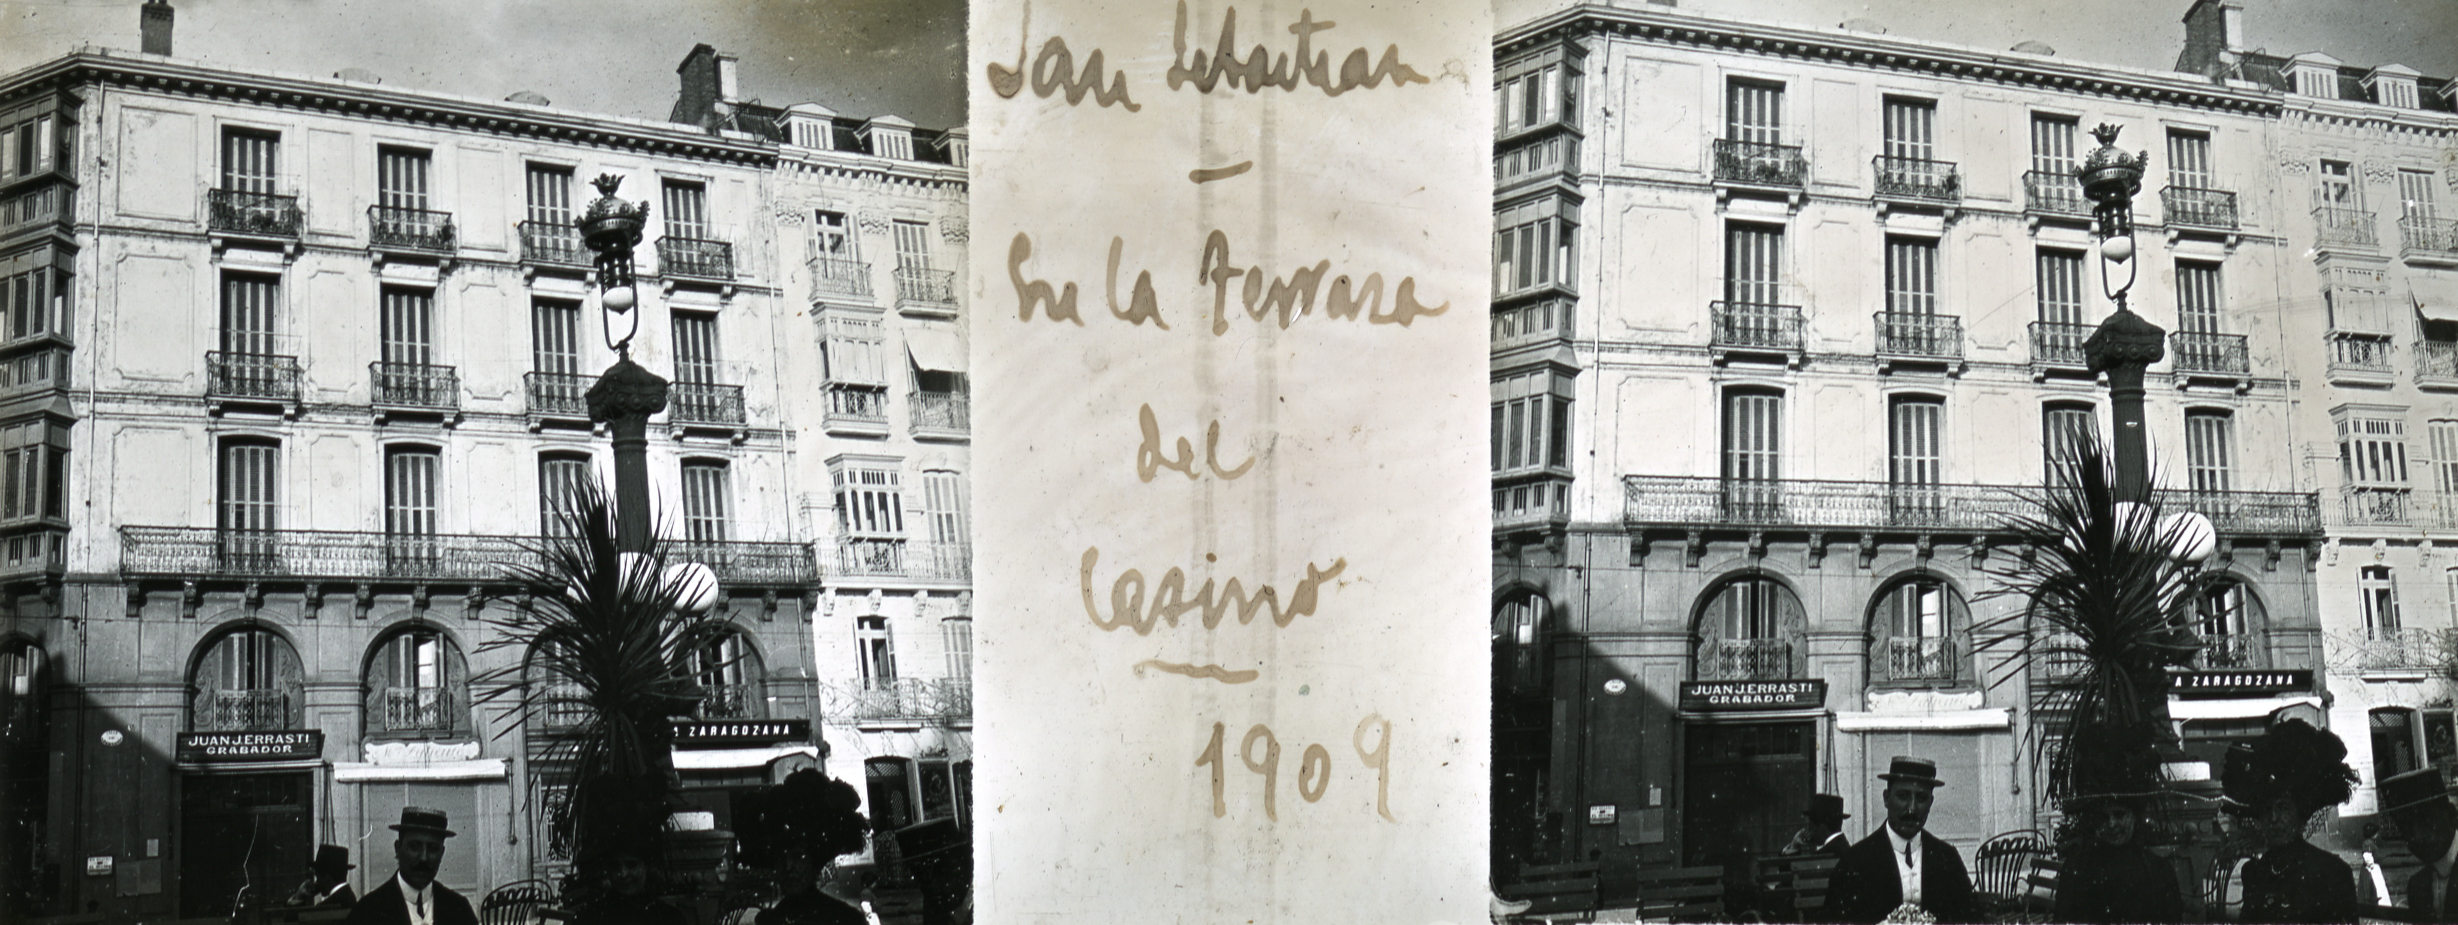 JUAN J. ERRASTI
GRABADOR
A ZARAGOZANA
San Sebastian
—
En la terraza
del
Casino
1909
JUAN J. ERRASTI
GRABADOR
A ZARAGOZANA